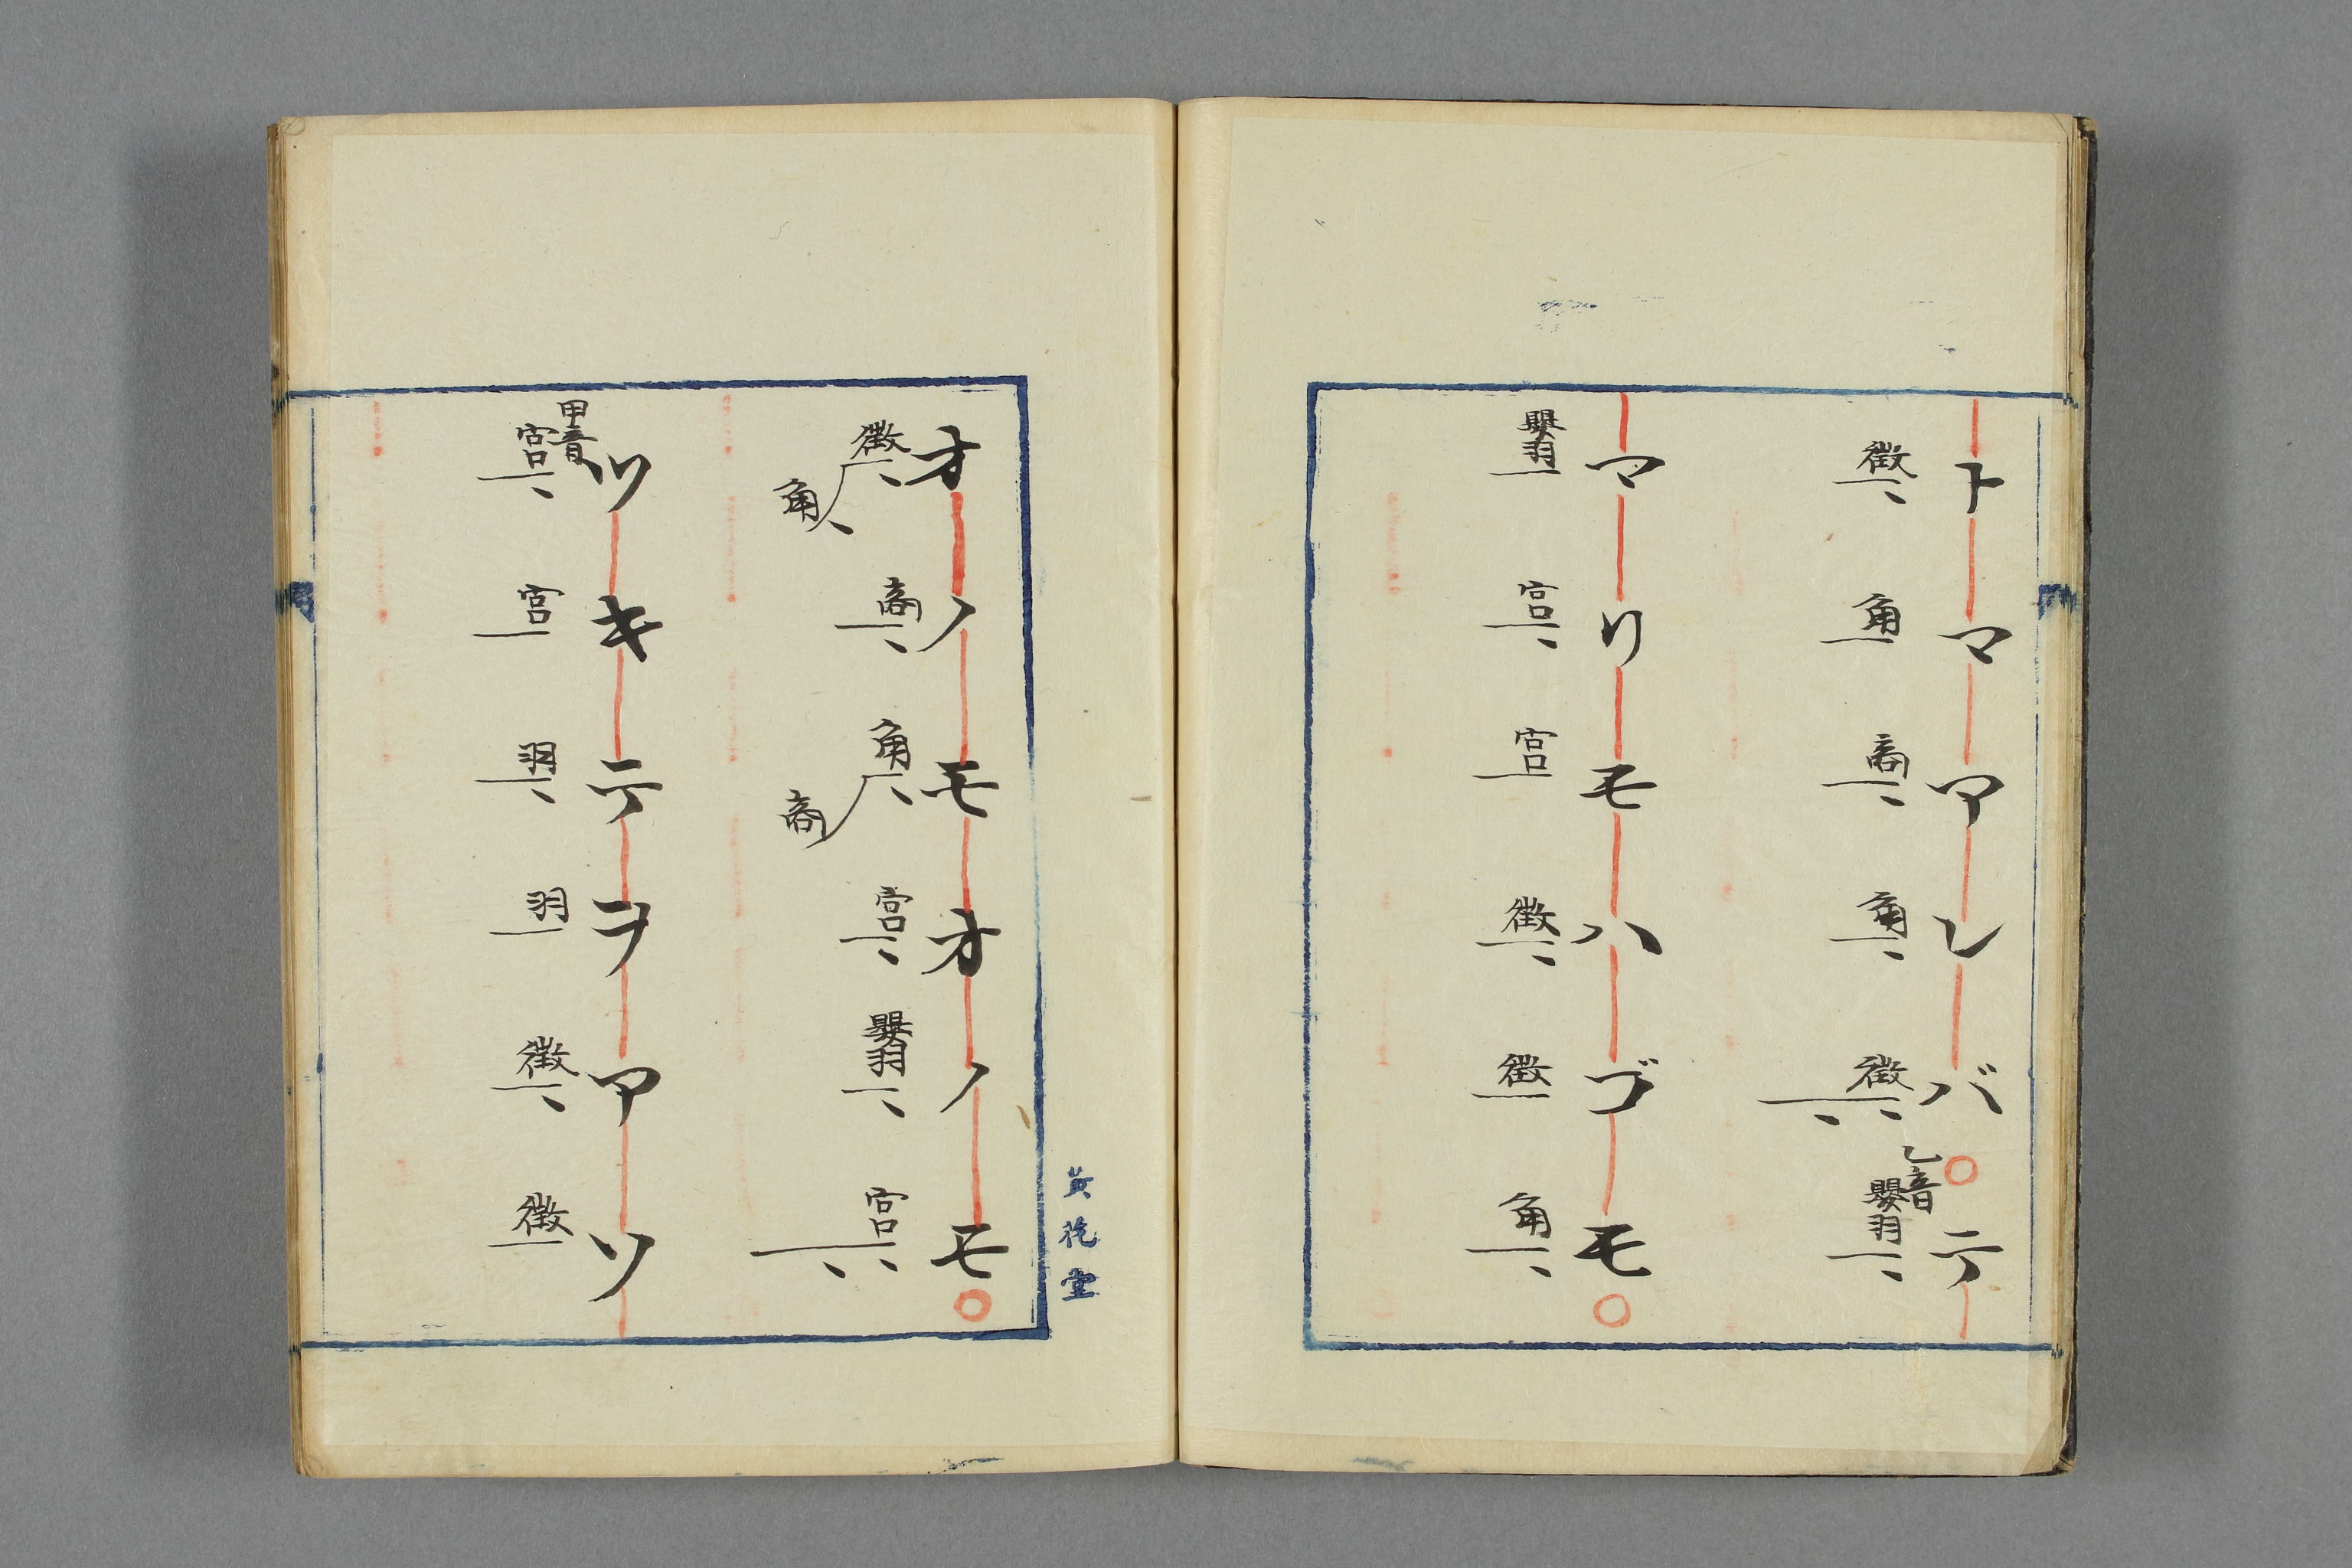 トマアレバ○テ
徴角商角徴乙音嬰羽
マリモハヅモ○
嬰羽宮宮徴徴角
オノモオノモ○
徴角商角商宮嬰羽宮
ツキテヲアソ
甲音宮宮羽羽徴徴